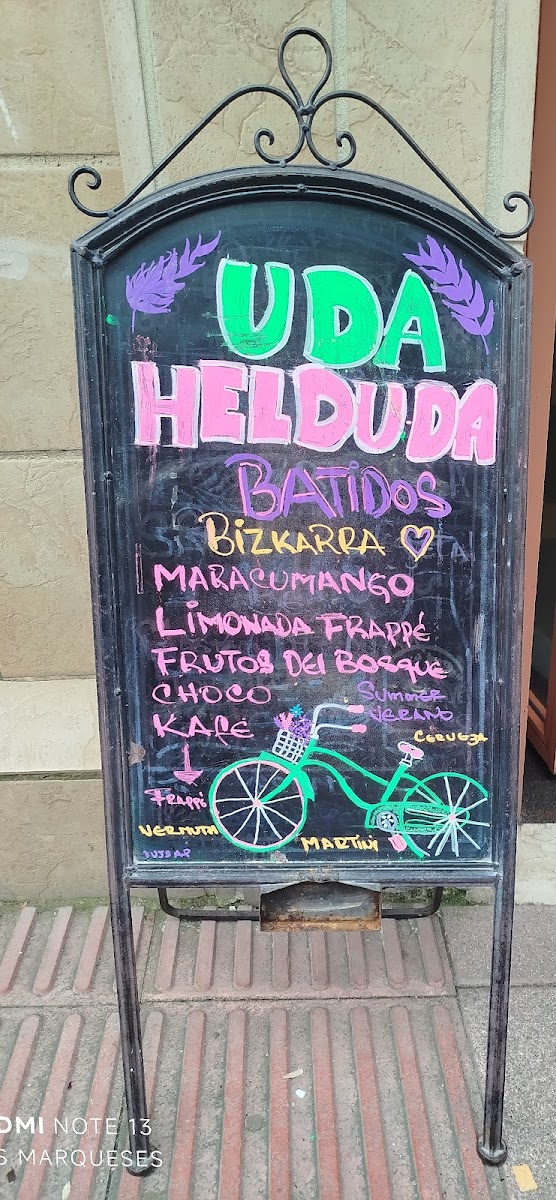 UDA
HELDUDA
BATIDOS
BIZKARRA
MARACUMANGO
LIMONADA FRAPPÉ
FRUTOS DEL BOSQUE
CHOCO
SUMMER
VERANO
KAFÉ
CERVEZA
FRAPPÉ
VERMUTH
MARTINI
OMI NOTE 13
S MARQUESES